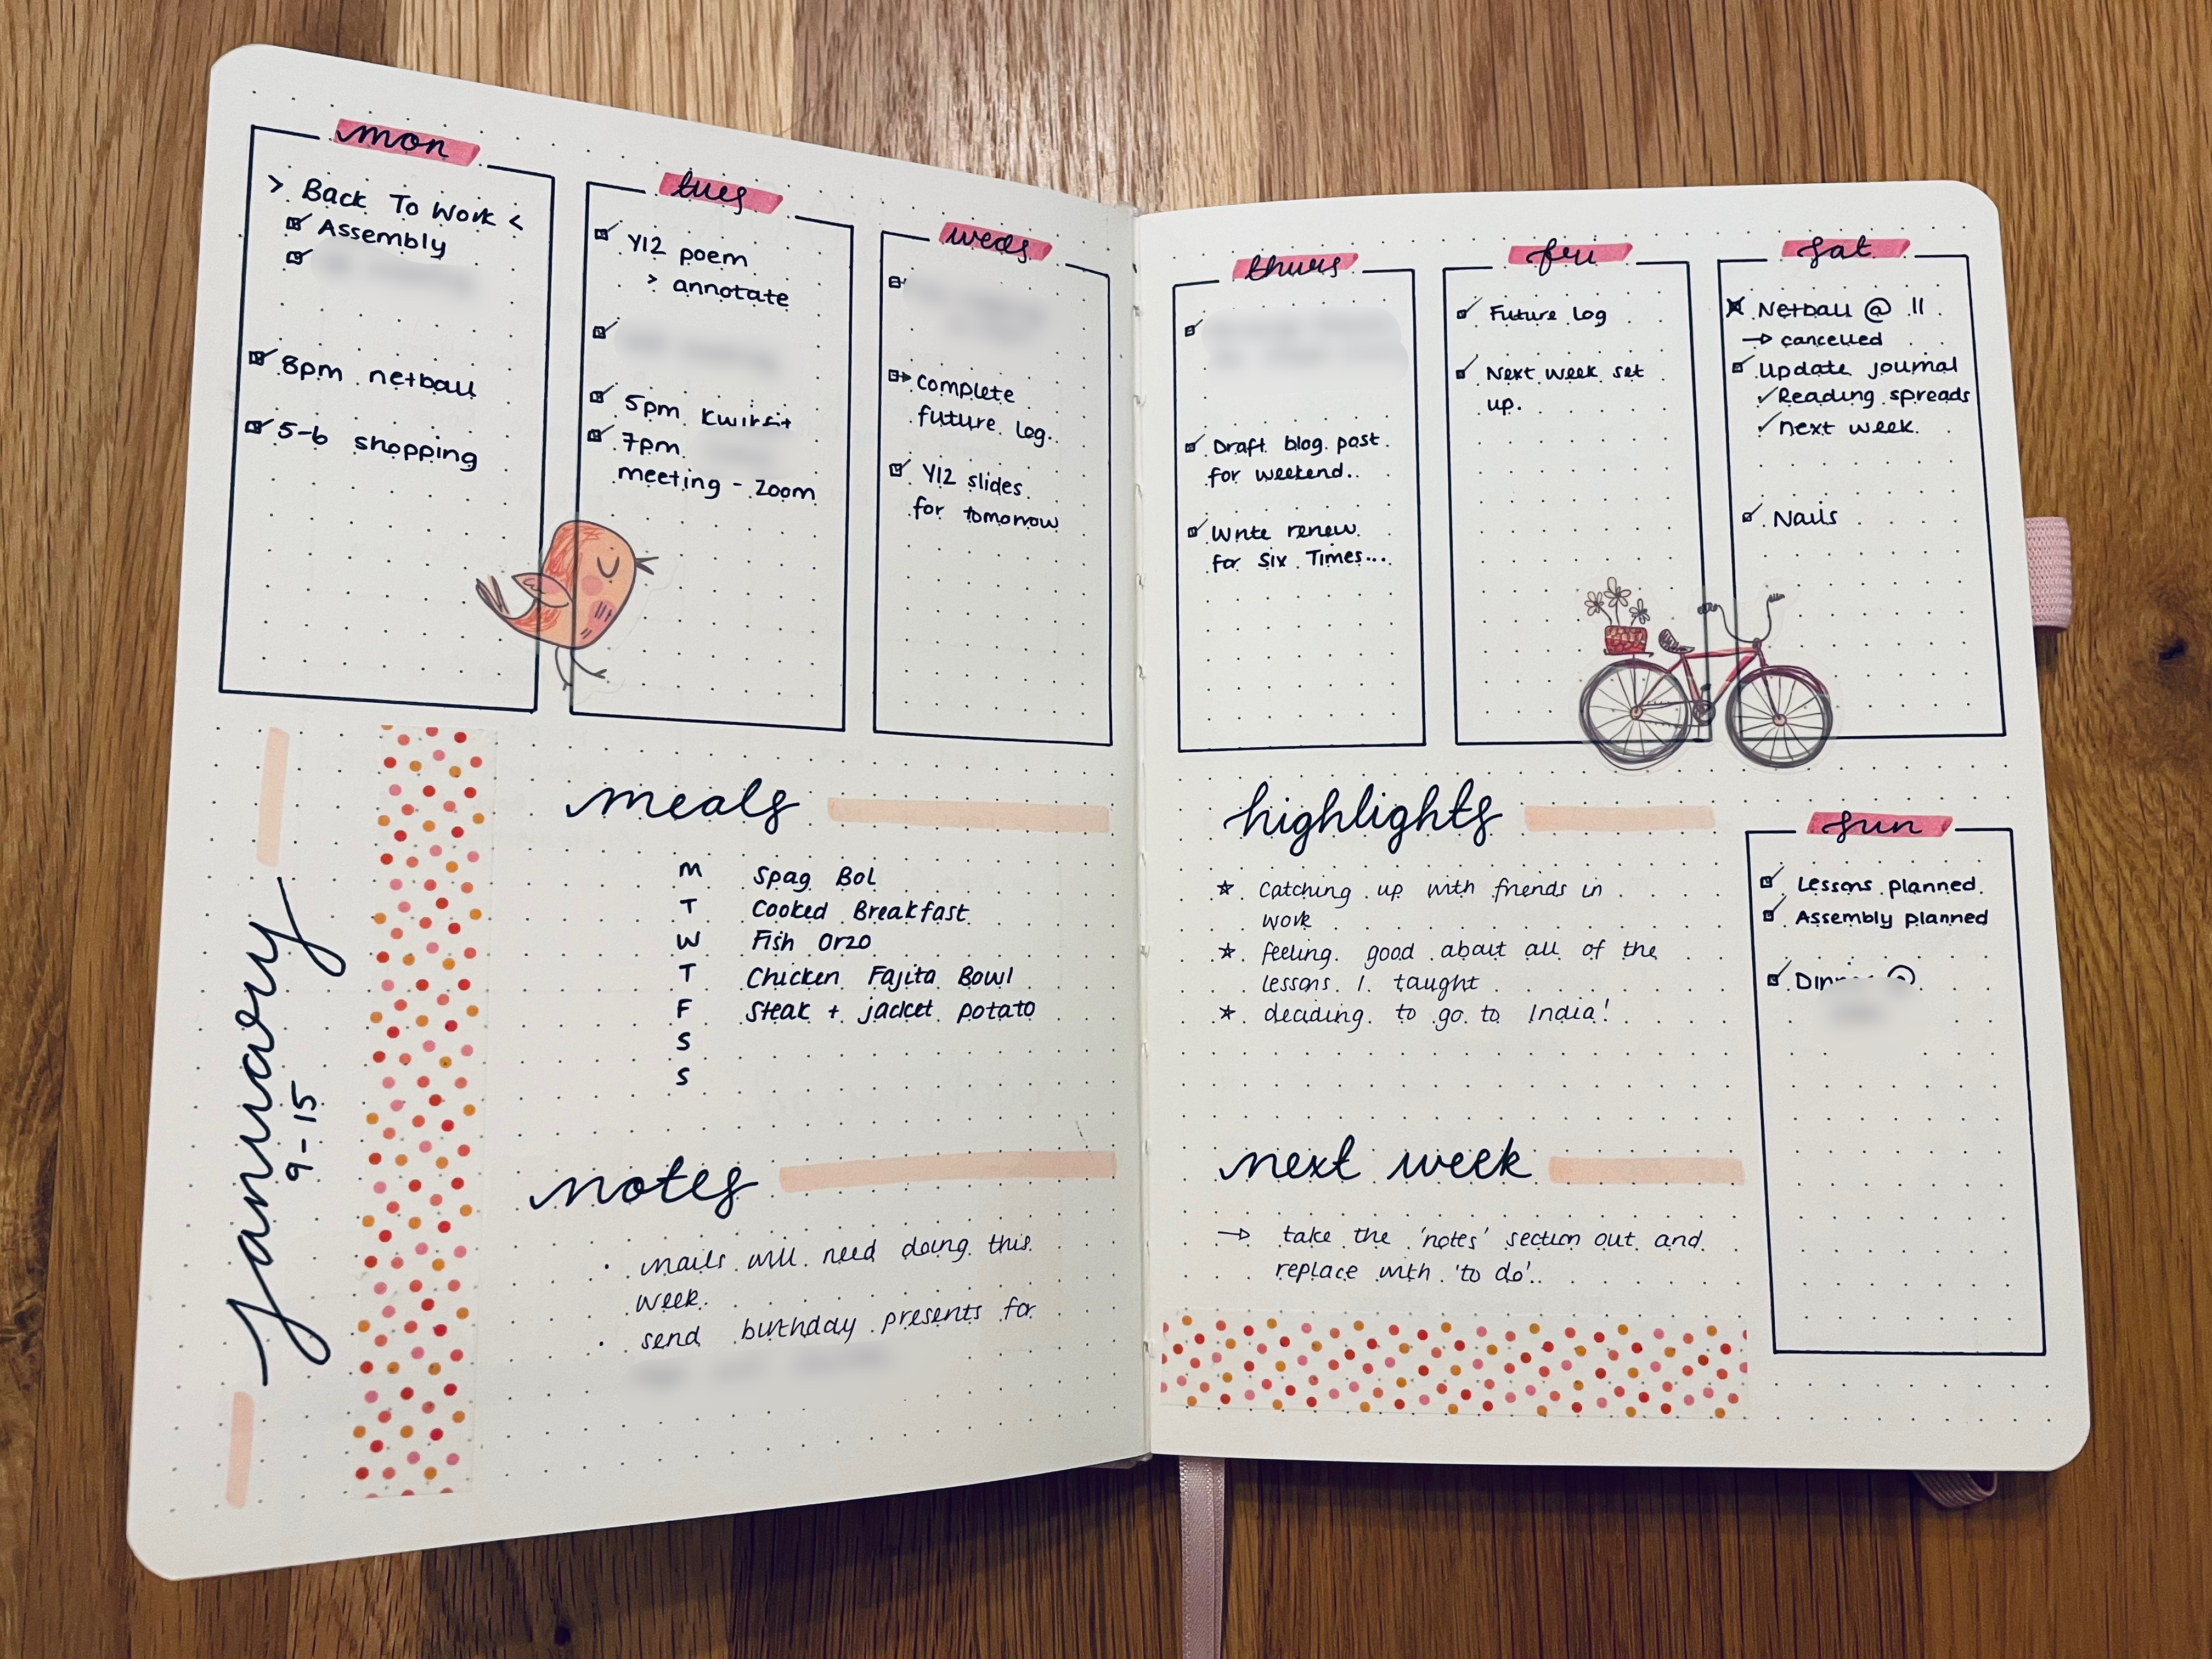 mon
> Back To Work <
Assembly
8pm netball
5-6 shopping
tues
Y12 poem
> annotate
5pm Kwikfit
7pm
meeting - Zoom
weds
complete
future log.
Y12 slides
for tomorrow
thurs
Draft blog post
for weekend..
Write review
for Six Times...
fri
Future log
Next week set
up.
sat
Netball @ 11
→ cancelled
Update journal
✓ Reading spreads
✓ next week.
Nails
january
9-15
meals
M Spag Bol
T Cooked Breakfast
W Fish Orzo
T Chicken Fajita Bowl
F Steak + jacket potato
S
S
notes
• nails will need doing this
week.
• send birthday presents for
highlights
☆ Catching up with friends in
work
☆ feeling good about all of the
lessons I taught
☆ deciding to go to India!
next week
→ take the 'notes' section out and
replace with 'to do'..
sun
Lessons planned
Assembly planned
Dinner @